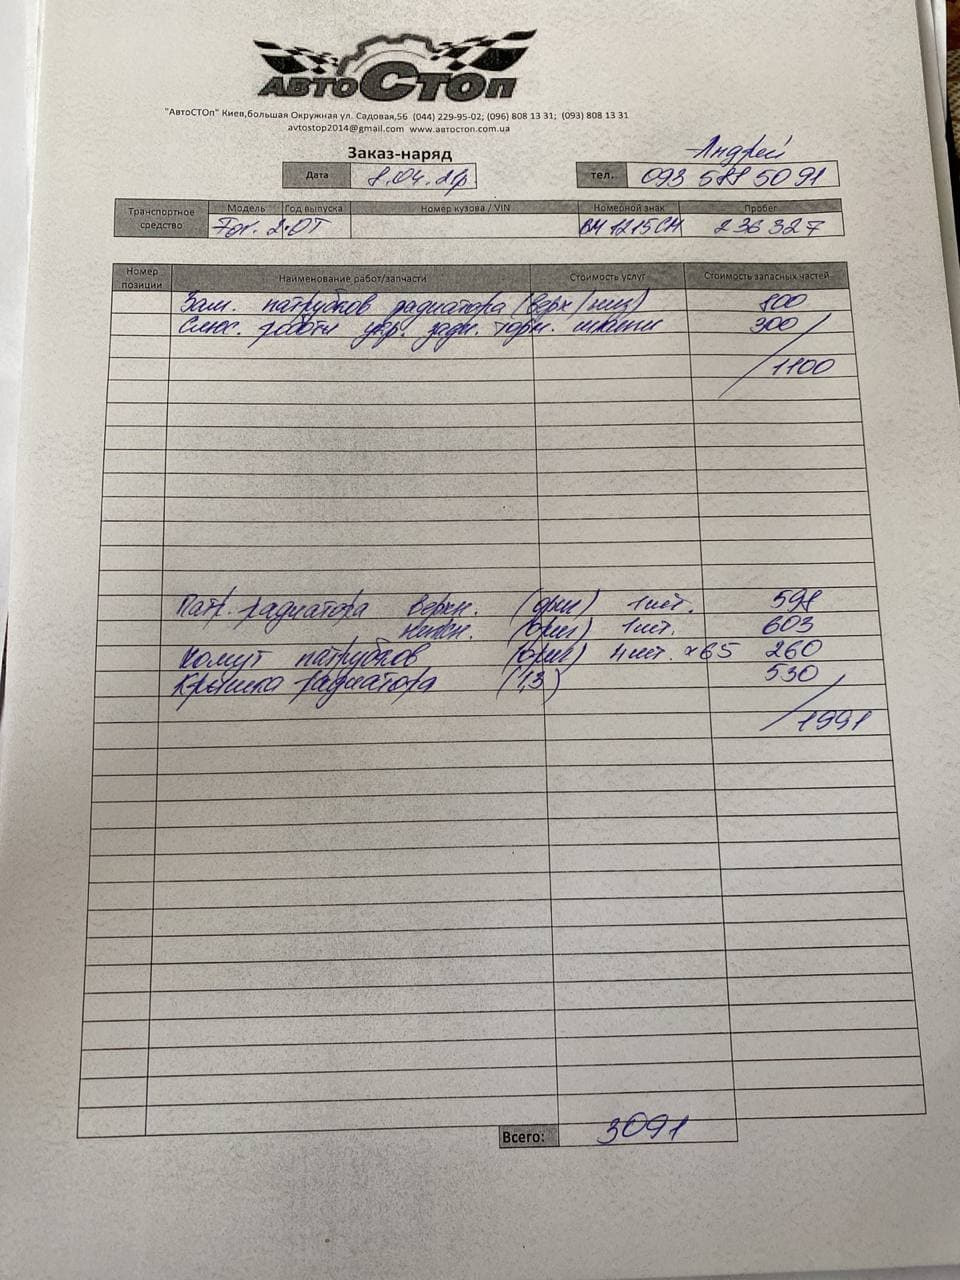 АвтоСТОп
"АвтоСТОп" Киев,большая Окружная ул. Садовая,56 (044) 229-95-02; (096) 808 13 31; (093) 808 13 31
avtostop2014@gmail.com www.автостоп.com.ua
Андрей
Заказ-наряд
Дата 8.04.21р. тел. 093 588 50 91
Транспортное средство Модель Год выпуска Номер кузова / VIN Номерной знак Пробег
For. 2.0T ВМ 1215СМ 236 327
Номер позиции Наименование работ/запчасти Стоимость услуг Стоимость запасных частей
Зам. патрубков радиатора (верх/низ) 800
Слюс. роботи укр. задн. торм. 300
1100
Патр. радиатора верхн. (ориг) 1шт. 598
нижн. (ориг) 1шт. 603
Хомут патрубков (ориг) 4шт. ×65 260
Крышка радиатора (1,3) 530
1991
Всего: 3091